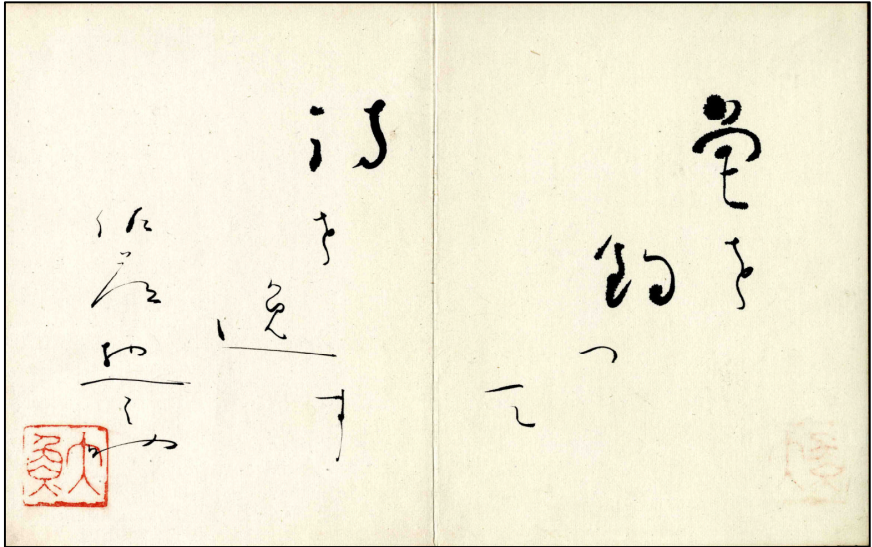 を
釣つ
て
詩を
逸す
佐藤惣之助